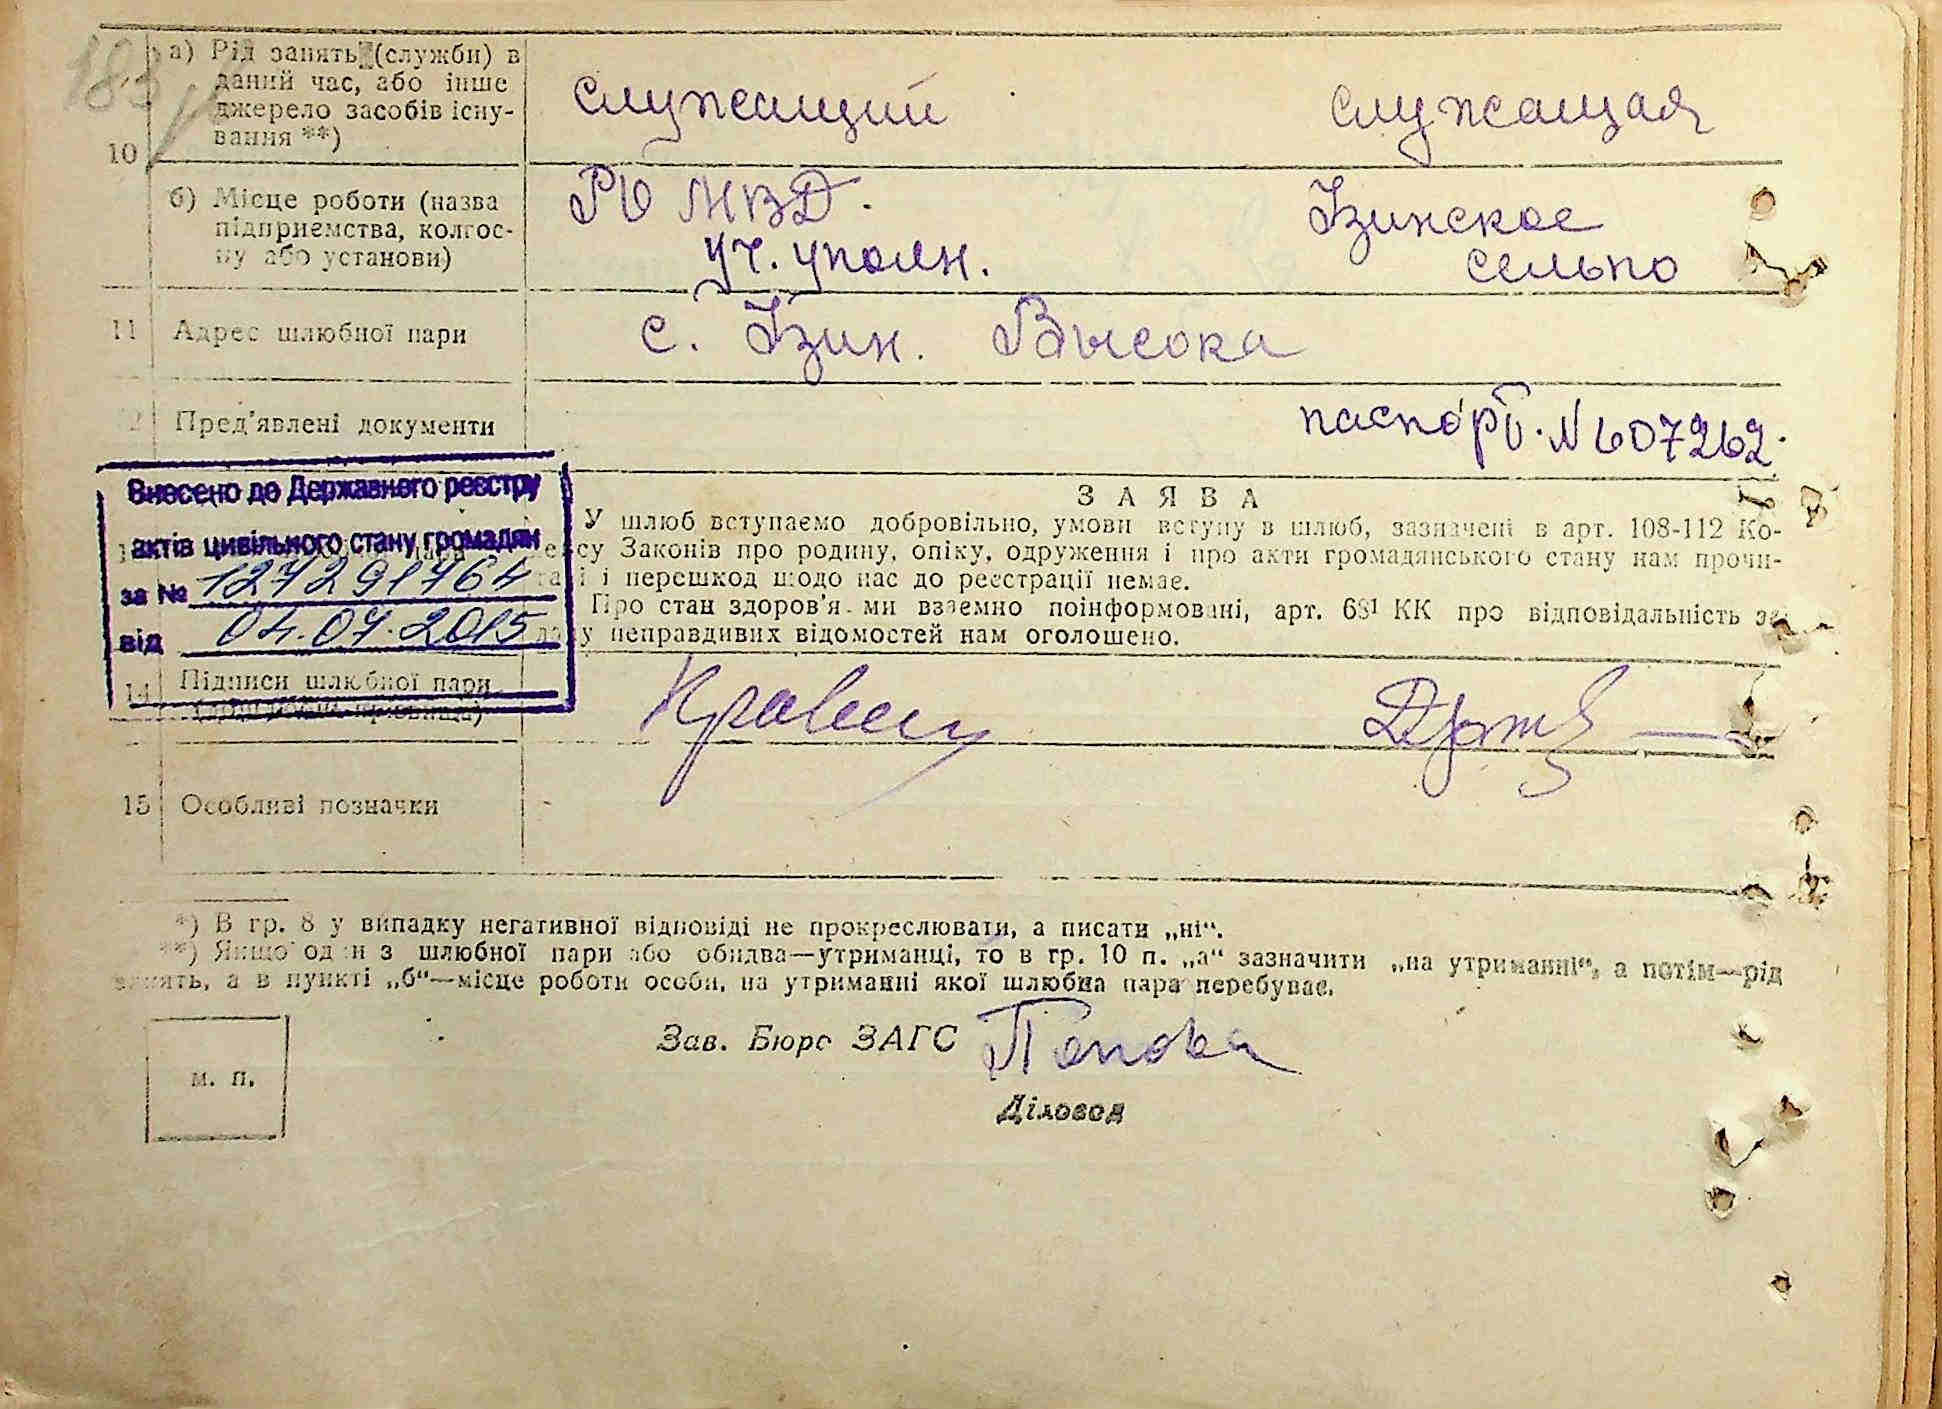 183
10
а) Рід занять (службы) в
даний час, або інше
джерело засобів існу-
вання **)
служащий
служащая
б) Місце роботи (назва
підприємства, колгос-
пу або установи)
РО МВД.
уч. уполн.
Ізинское
сельпо
11
Адрес шлюбної пари
с. Ізин. Высока
Пред'явлені документи
паспорт. N 607262.
Внесено до Державного реєстру
актів цивільного стану громадян
за № 127291764
від 04.07.2015
ЗАЯВА
У шлюб вступаємо добровільно, умови вступу в шлюб, зазначені в арт. 108-112 Ко-
су Законів про родину, опіку, одруження і про акти громадянського стану нам прочи-
і перешкод щодо нас до реєстрації немає.
Про стан здоров'я ми взаємно поінформовані, арт. 68¹ КК про відповідальність за
у неправдивих відомостей нам оголошено.
14
Підписи шлюбної пари
Кравец
15
Особливі позначки
*) В гр. 8 у випадку негативної відповіді не прокреслювати, а писати „ні“.
**) Якщо один з шлюбної пари або обидва—утриманці, то в гр. 10 п. „а“ зазначити „на утриманні“, а потім—рід
занять, а в пункті „б“—місце роботи особи, на утриманні якої шлюбна пара перебуває.
Зав. Бюро ЗАГС Попова
м. п.
Діловод